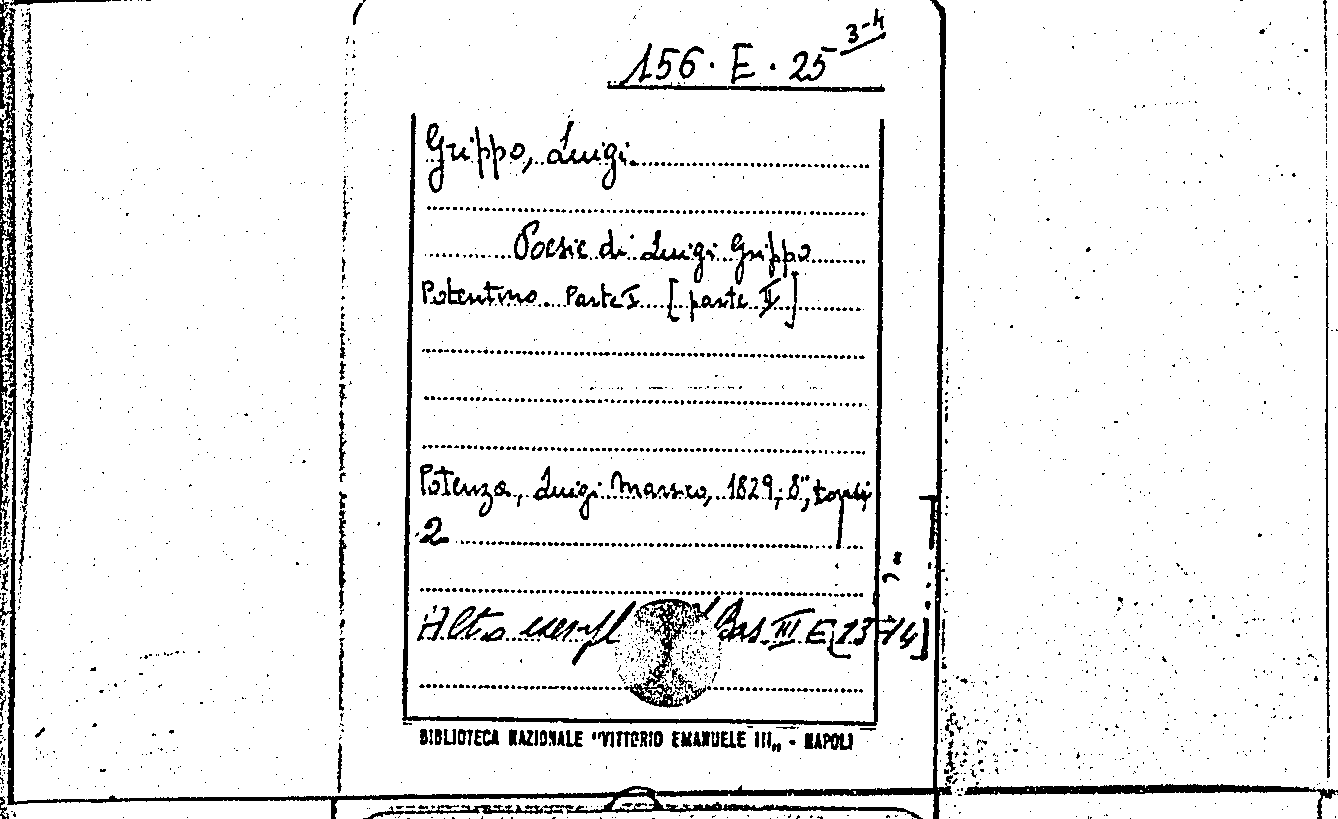 156. E. 25 3-4
Grippo, Luigi.
Poesie di Luigi Grippo
Potentino. Parte I. [parte II]
Potenza, Luigi Marsico, 1829, 8°, tomi
2
Altro esempl Bas. III E [13-14]
BIBLIOTECA NAZIONALE "VITTORIO EMANUELE III„ - NAPOLI